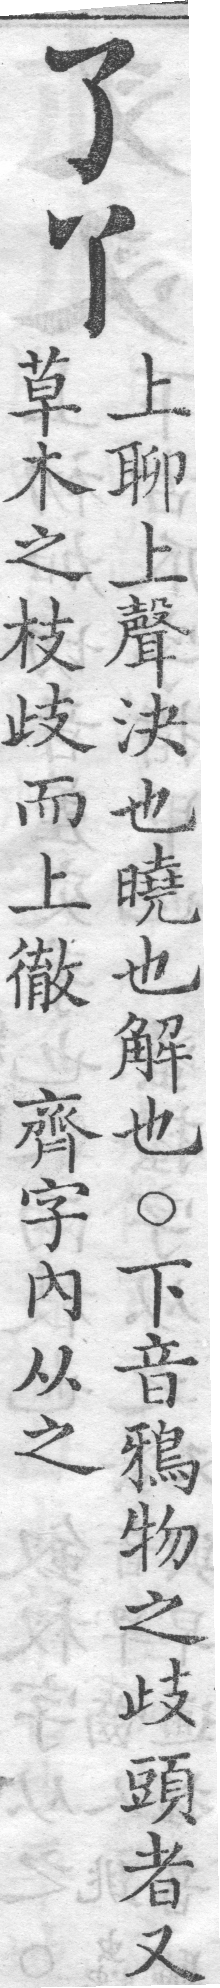 了丫
上聊上聲決也曉也解也○下音鴉物之歧頭者又
草木之枝歧而上徹　齊字內从之